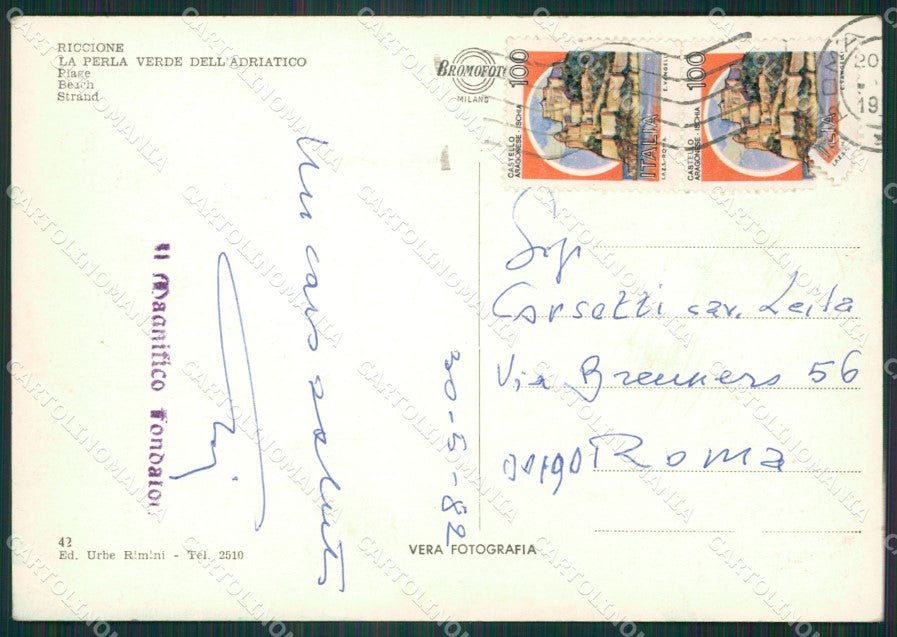 RICCIONE
LA PERLA VERDE DELL'ADRIATICO
Plage
Beach
Strand
BROMOFOTO
MILANO
100
CASTELLO
ARAGONESE · ISCHIA
ITALIA
I.P.Z.S. · ROMA
E. VANGELLI
100
CASTELLO
ARAGONESE · ISCHIA
ITALIA
I.P.Z.S.
20
19
Un caro saluto
30-5-82
Il Magnifico
Corsetti cav. Leila
Via Brennero 56
Roma
42
Ed. Urbe Rimini - Tel. 2510
VERA FOTOGRAFIA
CARTOLINOMANIA